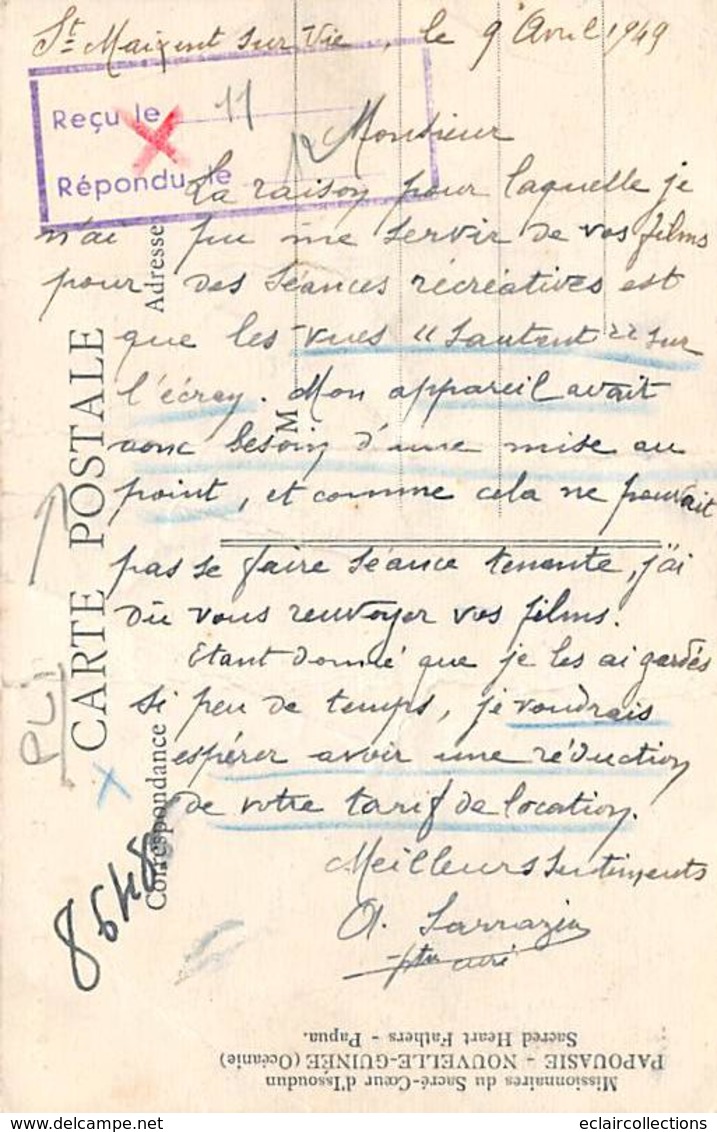 St Maixent sur Vie, le 9 Avril 1949
Reçu le 11
Répondu le 12
Monsieur
La raison pour laquelle je
n'ai pu me servir de vos films
pour des séances récréatives est
que les vues "sautent" sur
l'écran. Mon appareil avait
donc besoin d'une mise au
point, et comme cela ne pouvait
pas se faire séance tenante, j'ai
dû vous renvoyer vos films.
Etant donné que je les ai gardés
si peu de temps, je voudrais
espérer avoir une réduction
de votre tarif de location.
Meilleurs sentiments
A. Sarrazin
ptre curé
CARTE POSTALE
Correspondance
Adresse
M
PLI
8648
Missionnaires du Sacré-Cœur d'Issoudun
PAPOUASIE - NOUVELLE-GUINÉE (Océanie)
Sacred Heart Fathers - Papua.
eclaircollections